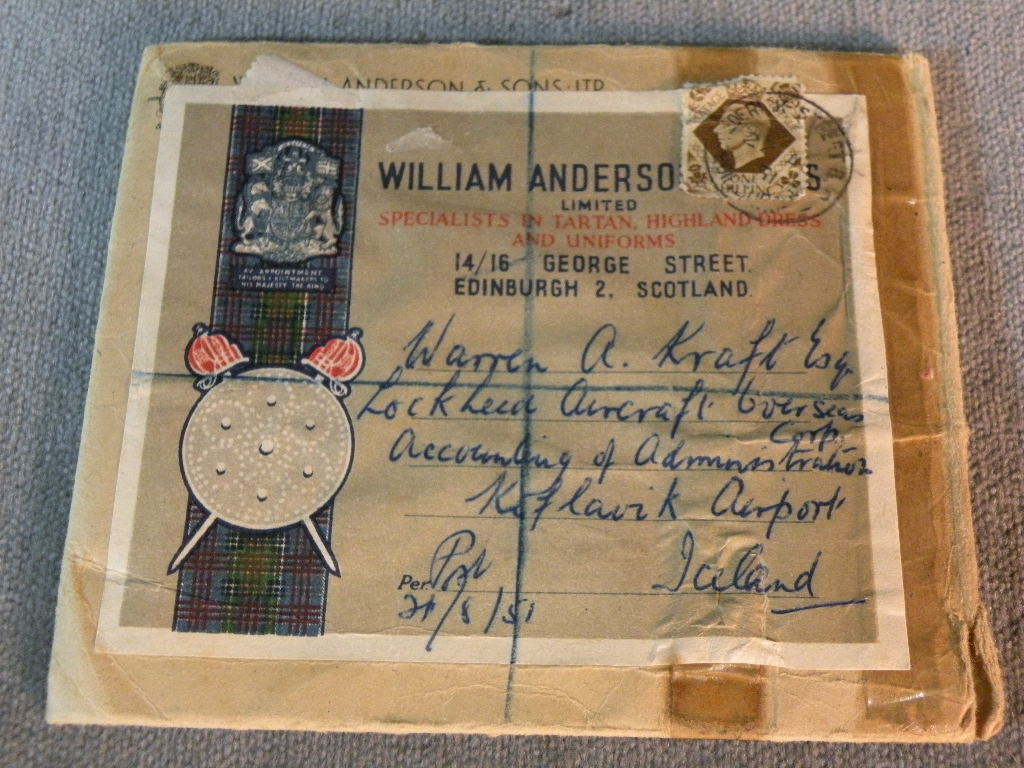 ANDERSON & SONS LTD
WILLIAM ANDERSON
LIMITED
SPECIALISTS IN TARTAN, HIGHLAND DRESS
AND UNIFORMS
14/16 GEORGE STREET.
EDINBURGH 2, SCOTLAND.
BY APPOINTMENT
TAILORS & KILTMAKERS TO
HIS MAJESTY THE KING
Warren A. Kraft Esq
Lockheed Aircraft Overseas
Corp.
Accounting & Administration
Keflavik Airport
Iceland
Per